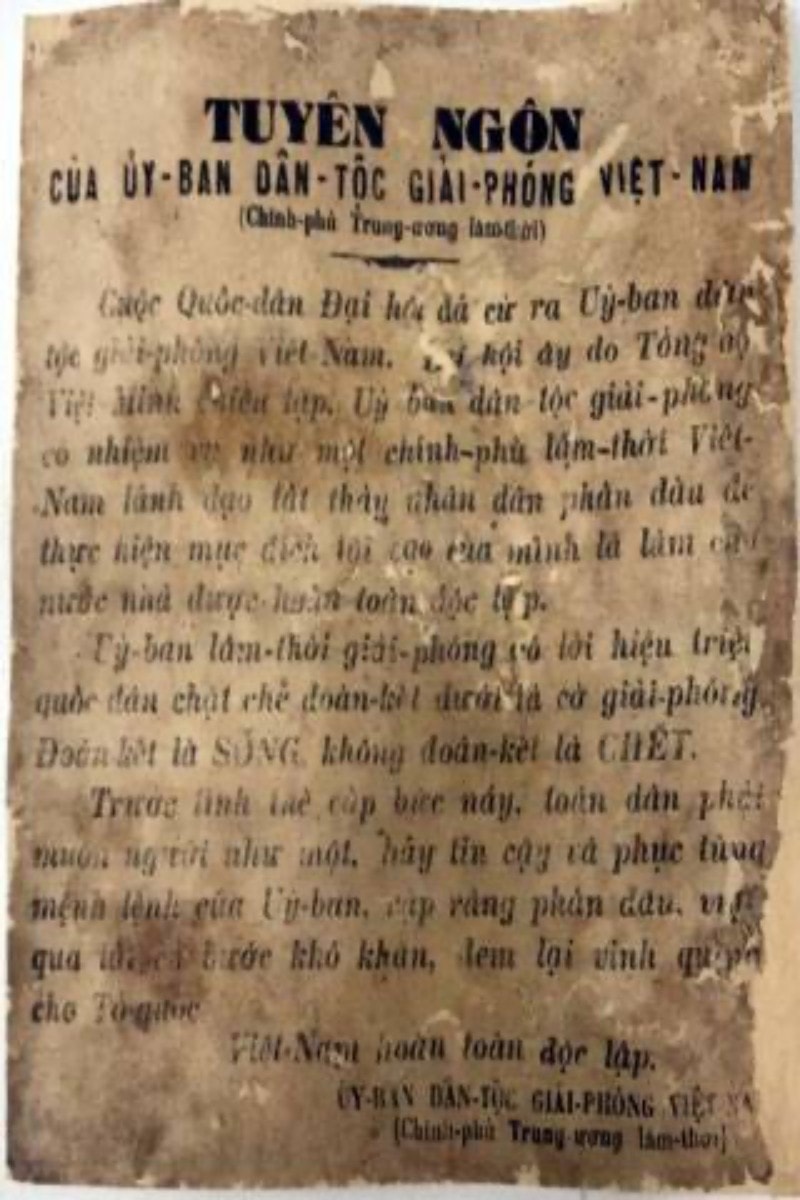 TUYÊN NGÔN
CỦA ỦY-BAN DÂN-TỘC GIẢI-PHÓNG VIỆT-NAM
(Chính-phủ Trung-ương lâm-thời)
Cuộc Quốc-dân Đại hội đã cử ra Uỷ-ban dân
tộc giải-phóng Việt-Nam. Đại hội ấy do Tổng bộ
Việt Minh triệu tập. Uỷ ban dân tộc giải-phóng
có nhiệm vụ như một chính-phủ lâm-thời Việt-
Nam lãnh đạo tất thảy nhân dân phấn đấu để
thực hiện mục đích tối cao của mình là làm cho
nước nhà được hoàn toàn độc lập.
Uỷ-ban lâm-thời giải-phóng có lời hiệu triệu
quốc dân chặt chẽ đoàn-kết dưới lá cờ giải-phóng.
Đoàn-kết là SỐNG, không đoàn-kết là CHẾT.
Trước tình thế cấp bức này, toàn dân phải
muôn người như một, hãy tin cậy và phục tùng
mệnh lệnh của Uỷ-ban, cấp rằng phấn đấu, vượt
qua bước khó khăn, đem lại vinh quang
cho Tổ-quốc
Việt-Nam hoàn toàn độc lập.
ỦY-BAN DÂN-TỘC GIẢI-PHÓNG VIỆT NAM
(Chính-phủ Trung-ương lâm-thời)